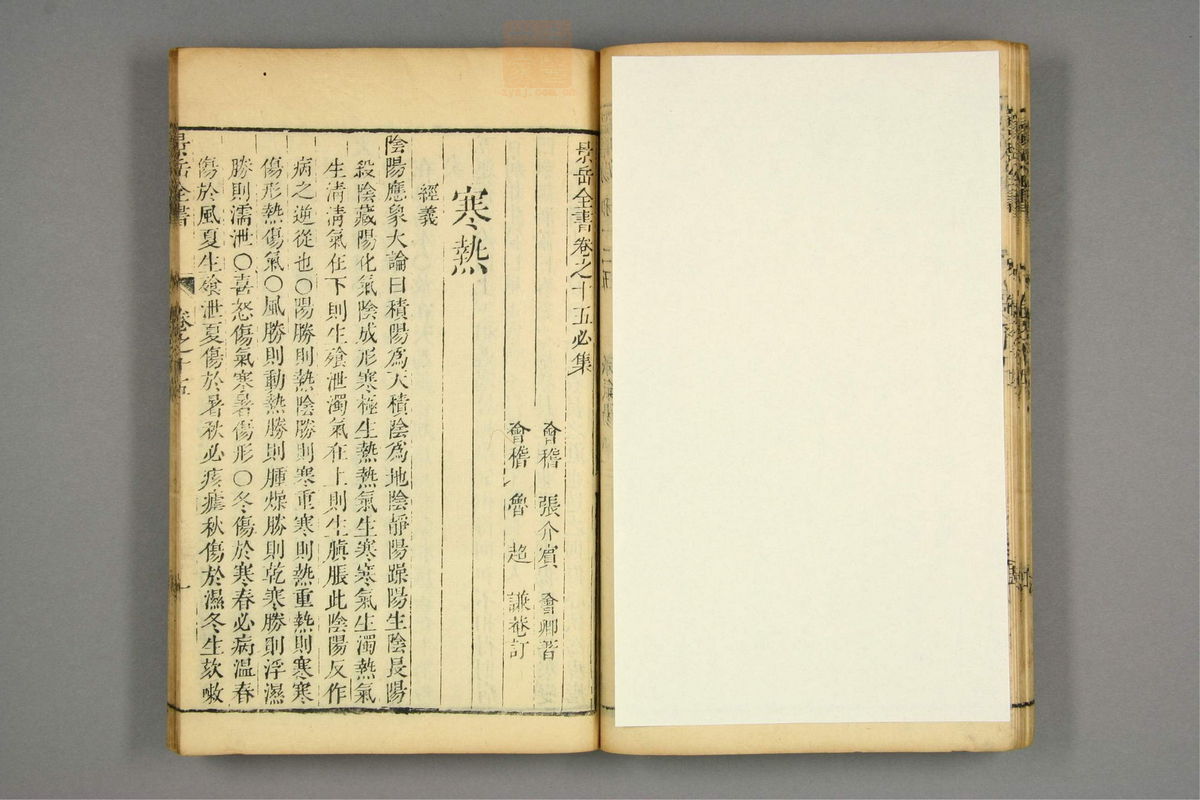 景岳全書卷之十五必集
會稽 張介賓 會卿著
會稽 魯超 謙菴訂
寒熱
經義
陰陽應象大論曰積陽爲天積陰爲地陰靜陽躁陽生陰長陽
殺陰藏陽化氣陰成形寒極生熱熱氣生寒寒氣生濁熱氣
生淸淸氣在下則生飱泄濁氣在上則生䐜脹此陰陽反作
病之逆從也〇陽勝則熱陰勝則寒重寒則熱重熱則寒寒
傷形熱傷氣〇風勝則動熱勝則腫燥勝則乾寒勝則浮濕
勝則濡泄〇喜怒傷氣寒暑傷形〇冬傷於寒春必病溫春
傷於風夏生飱泄夏傷於暑秋必痎瘧秋傷於濕冬生欬嗽
景岳全書
卷之十五
一